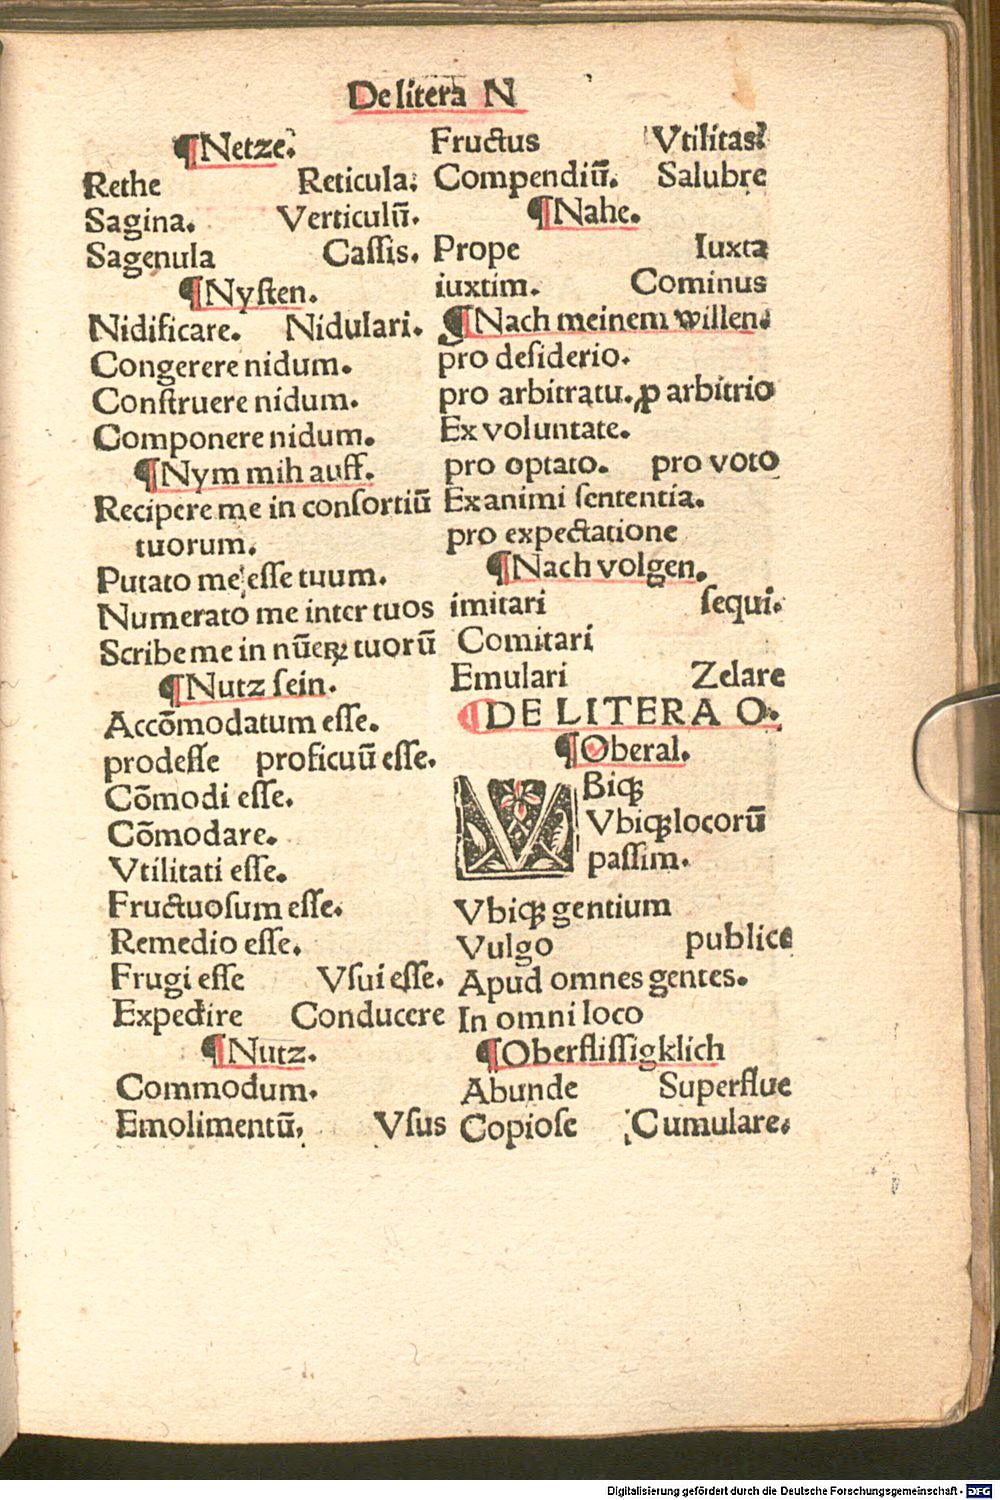 De litera N
¶Netze.
Rethe Reticula.
Sagina. Verticulū.
Sagenula Cassis.
¶Nysten.
Nidificare. Nidulari.
Congerere nidum.
Construere nidum.
Componere nidum.
¶Nym mih auff.
Recipere me in consortiū
tuorum.
Putato me esse tuum.
Numerato me inter tuos
Scribe me in nūeꝝ tuorū
¶Nutz sein.
Accōmodatum esse.
prodesse proficuū esse.
Cōmodi esse.
Cōmodare.
Vtilitati esse.
Fructuosum esse.
Remedio esse.
Frugi esse Vsui esse.
Expedire Conducere
¶Nutz.
Commodum.
Emolimentū. Vsus
Fructus Vtilitas.
Compendiū. Salubre
¶Nahe.
Prope Iuxta
iuxtim. Cominus
¶Nach meinem willen.
pro desiderio.
pro arbitratu. ꝓ arbitrio
Ex voluntate.
pro optato. pro voto
Ex animi sententia.
pro expectatione
¶Nach volgen.
imitari sequi.
Comitari
Emulari Zelare
¶DE LITERA O.
¶Oberal.
VBiqꝫ
Vbiqꝫ locorū
passim.
Vbiqꝫ gentium
Vulgo publice
Apud omnes gentes.
In omni loco
¶Oberflissigklich
Abunde Superflue
Copiose Cumulare.
Digitalisierung gefördert durch die Deutsche Forschungsgemeinschaft - DFG